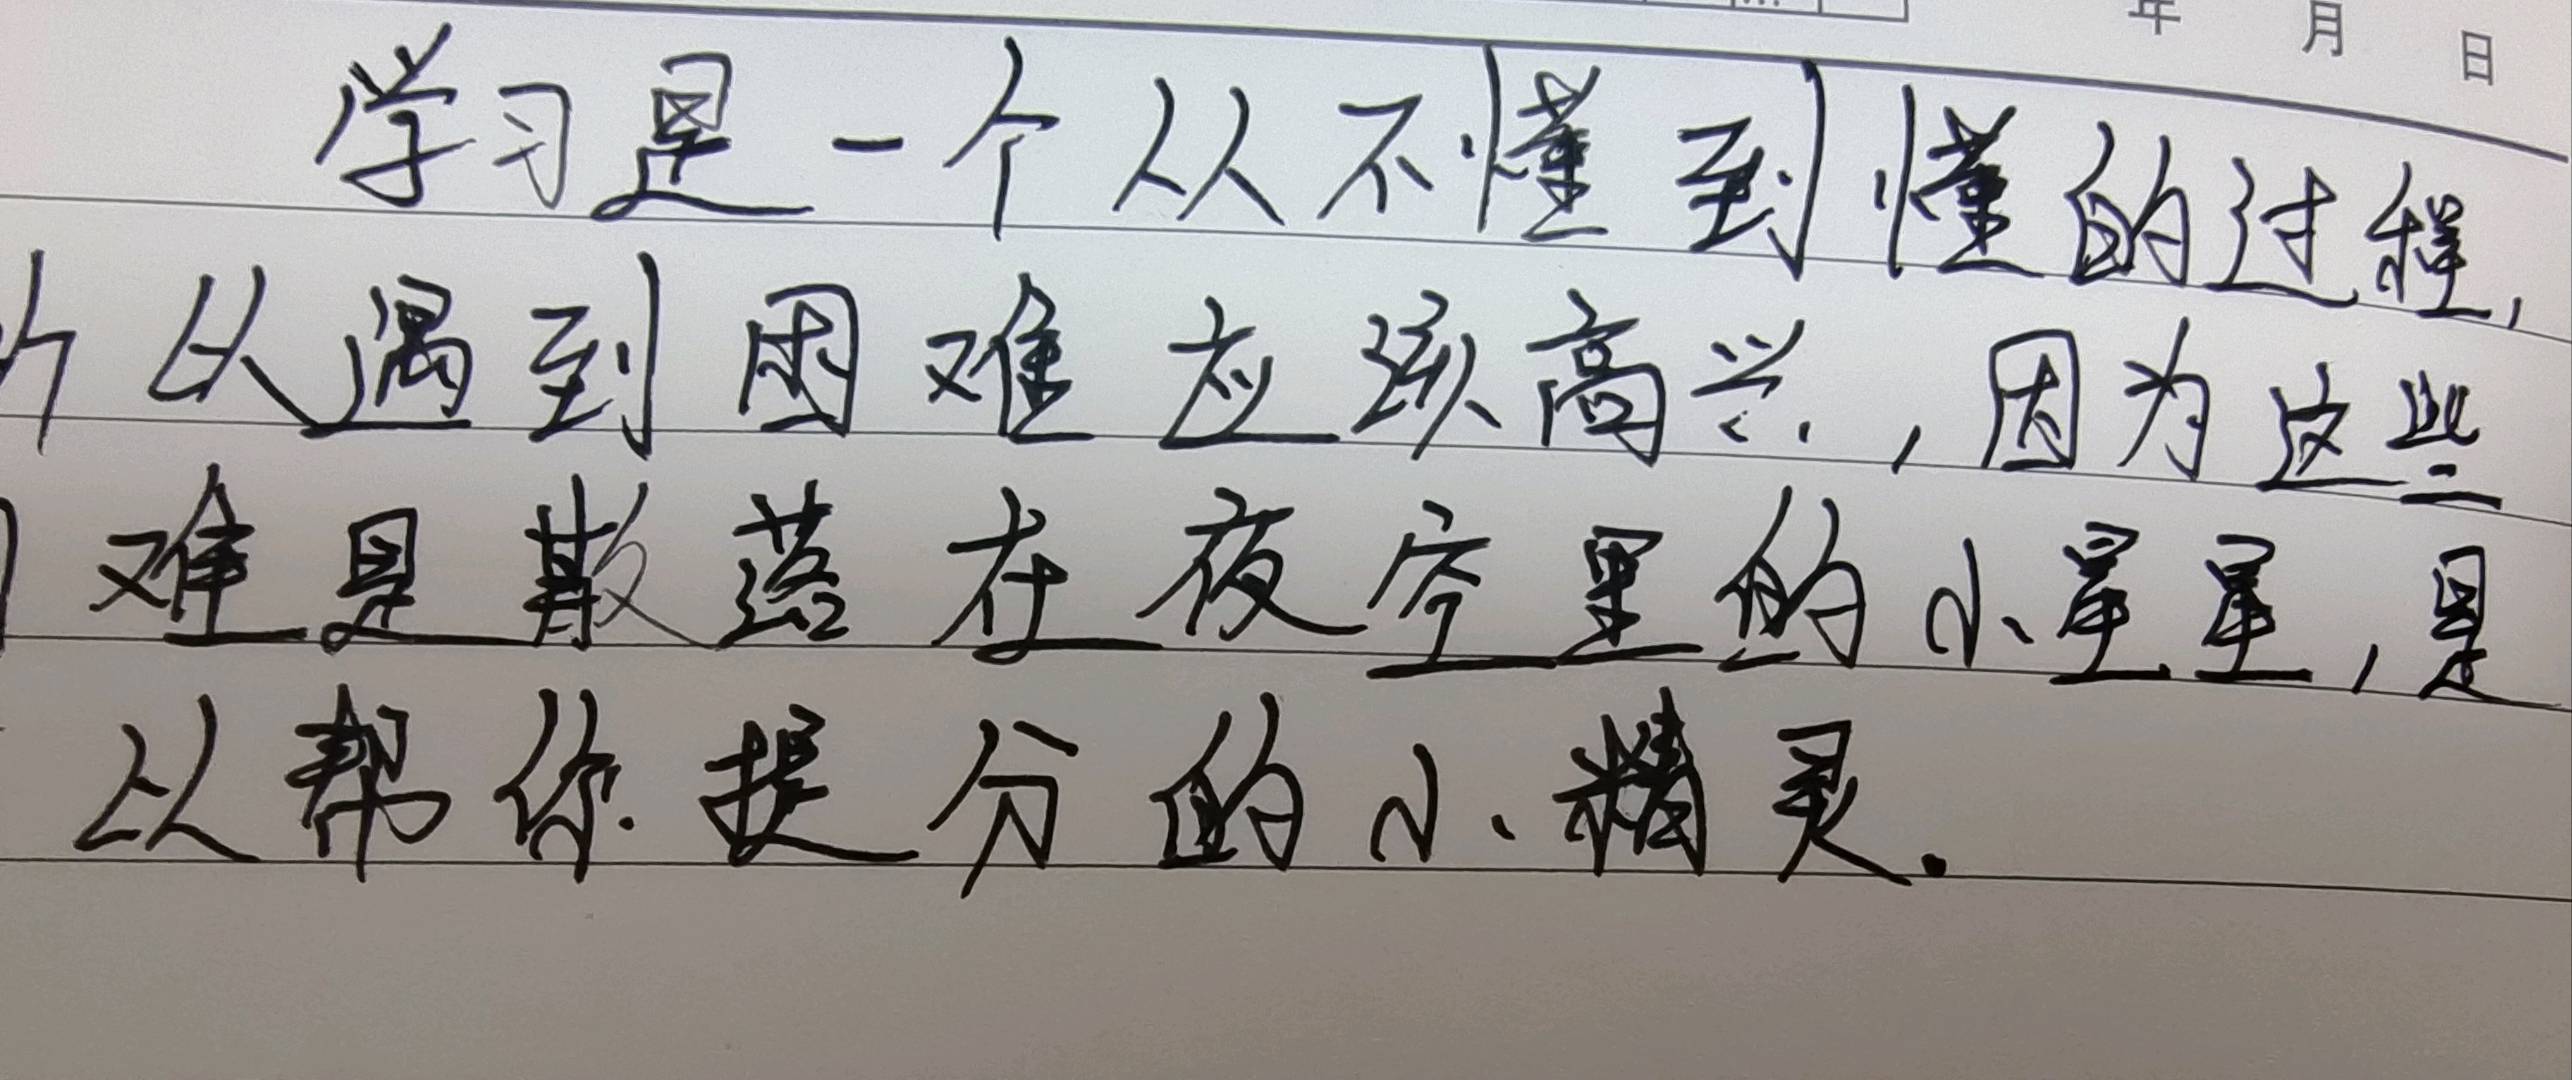 年 月 日
学习是一个从不懂到懂的过程,
所以遇到困难应该高兴,因为这些
难是散落在夜空里的小星星,是
以帮你提分的小精灵.